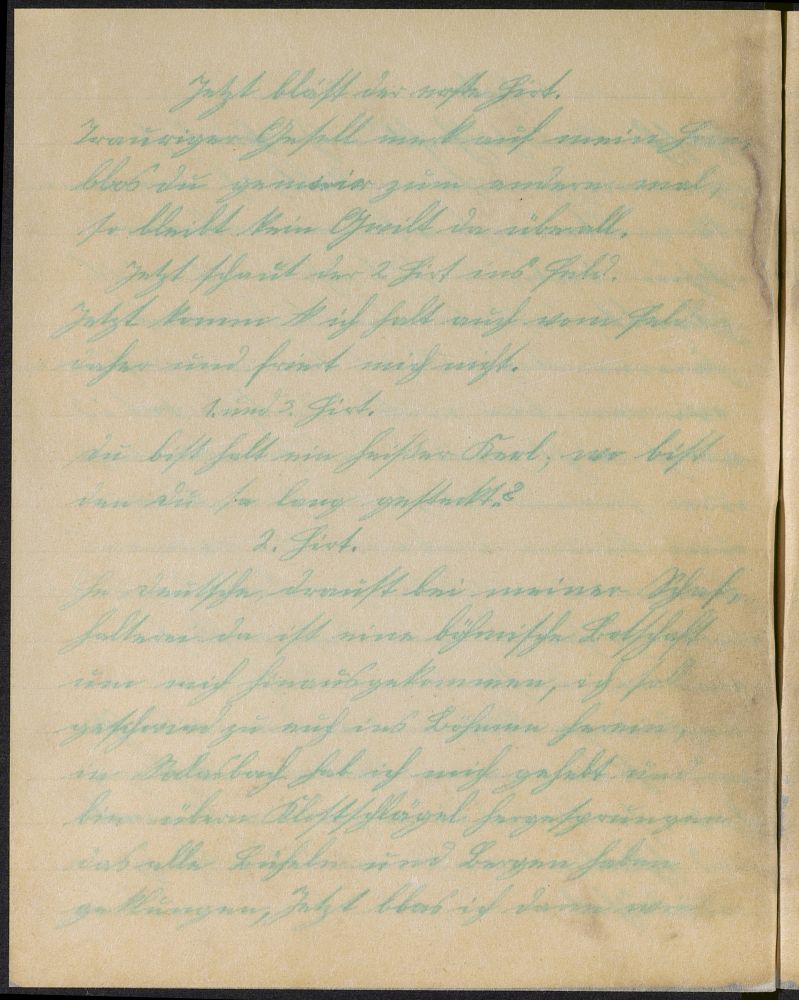 Jetzt bläst der erste Hirt.
Trauriger Gesell merk auf mein
blas du zum andern mal,
so bleibt kein Gwilt da überall.
Jetzt schaut der 2 Hirt ins Feld.
Jetzt komm ich halt auch vom Feld
daher und friert mich nicht.
1. und 3. Hirt.
du bist halt ein heißer Kerl, wo bist
den du so lang gesteckt?
2. Hirt.
He deutsche draust bei meiner Schaf-
halterei da ist eine böhmische Botschaft
um mich hinausgekommen, ich soll
geschwind zu euch ins Böhmen herein,
in hab ich mich gehebt und
bin übern hergesprungen
das alle Bücheln und Bergen haben
geklungen, Jetzt blas ich dann